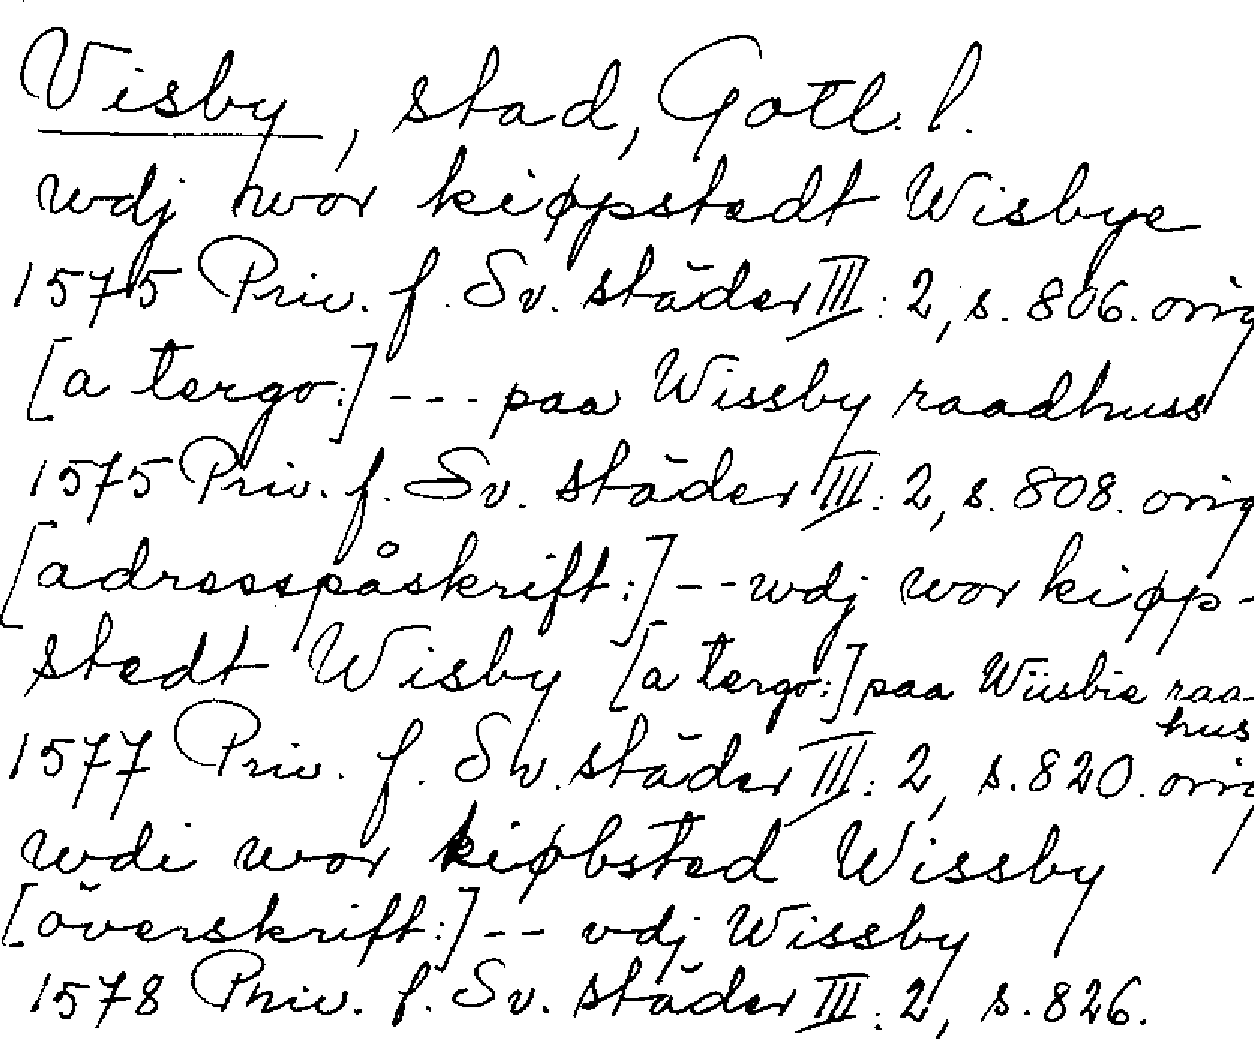 Visby, stad, Gotl. l.
wdj wor kiøpstedt Wisbye
1575 Priv. f. Sv. städer III: 2, s. 806. orig
[a tergo:] --- paa Wissby raadhuss
1575 Priv. f. Sv. städer III: 2, s. 808. orig
[adresspåskrift:] -- wdj wor kiøp-
stedt Wisby [a tergo:] paa Wiisbie raa-
hus
1577 Priv. f. Sv. städer III: 2, s. 820. orig
wdi wor kiøbsted Wissby
[överskrift:] -- vdj Wissby
1578 Priv. f. Sv. städer III: 2, s. 826.